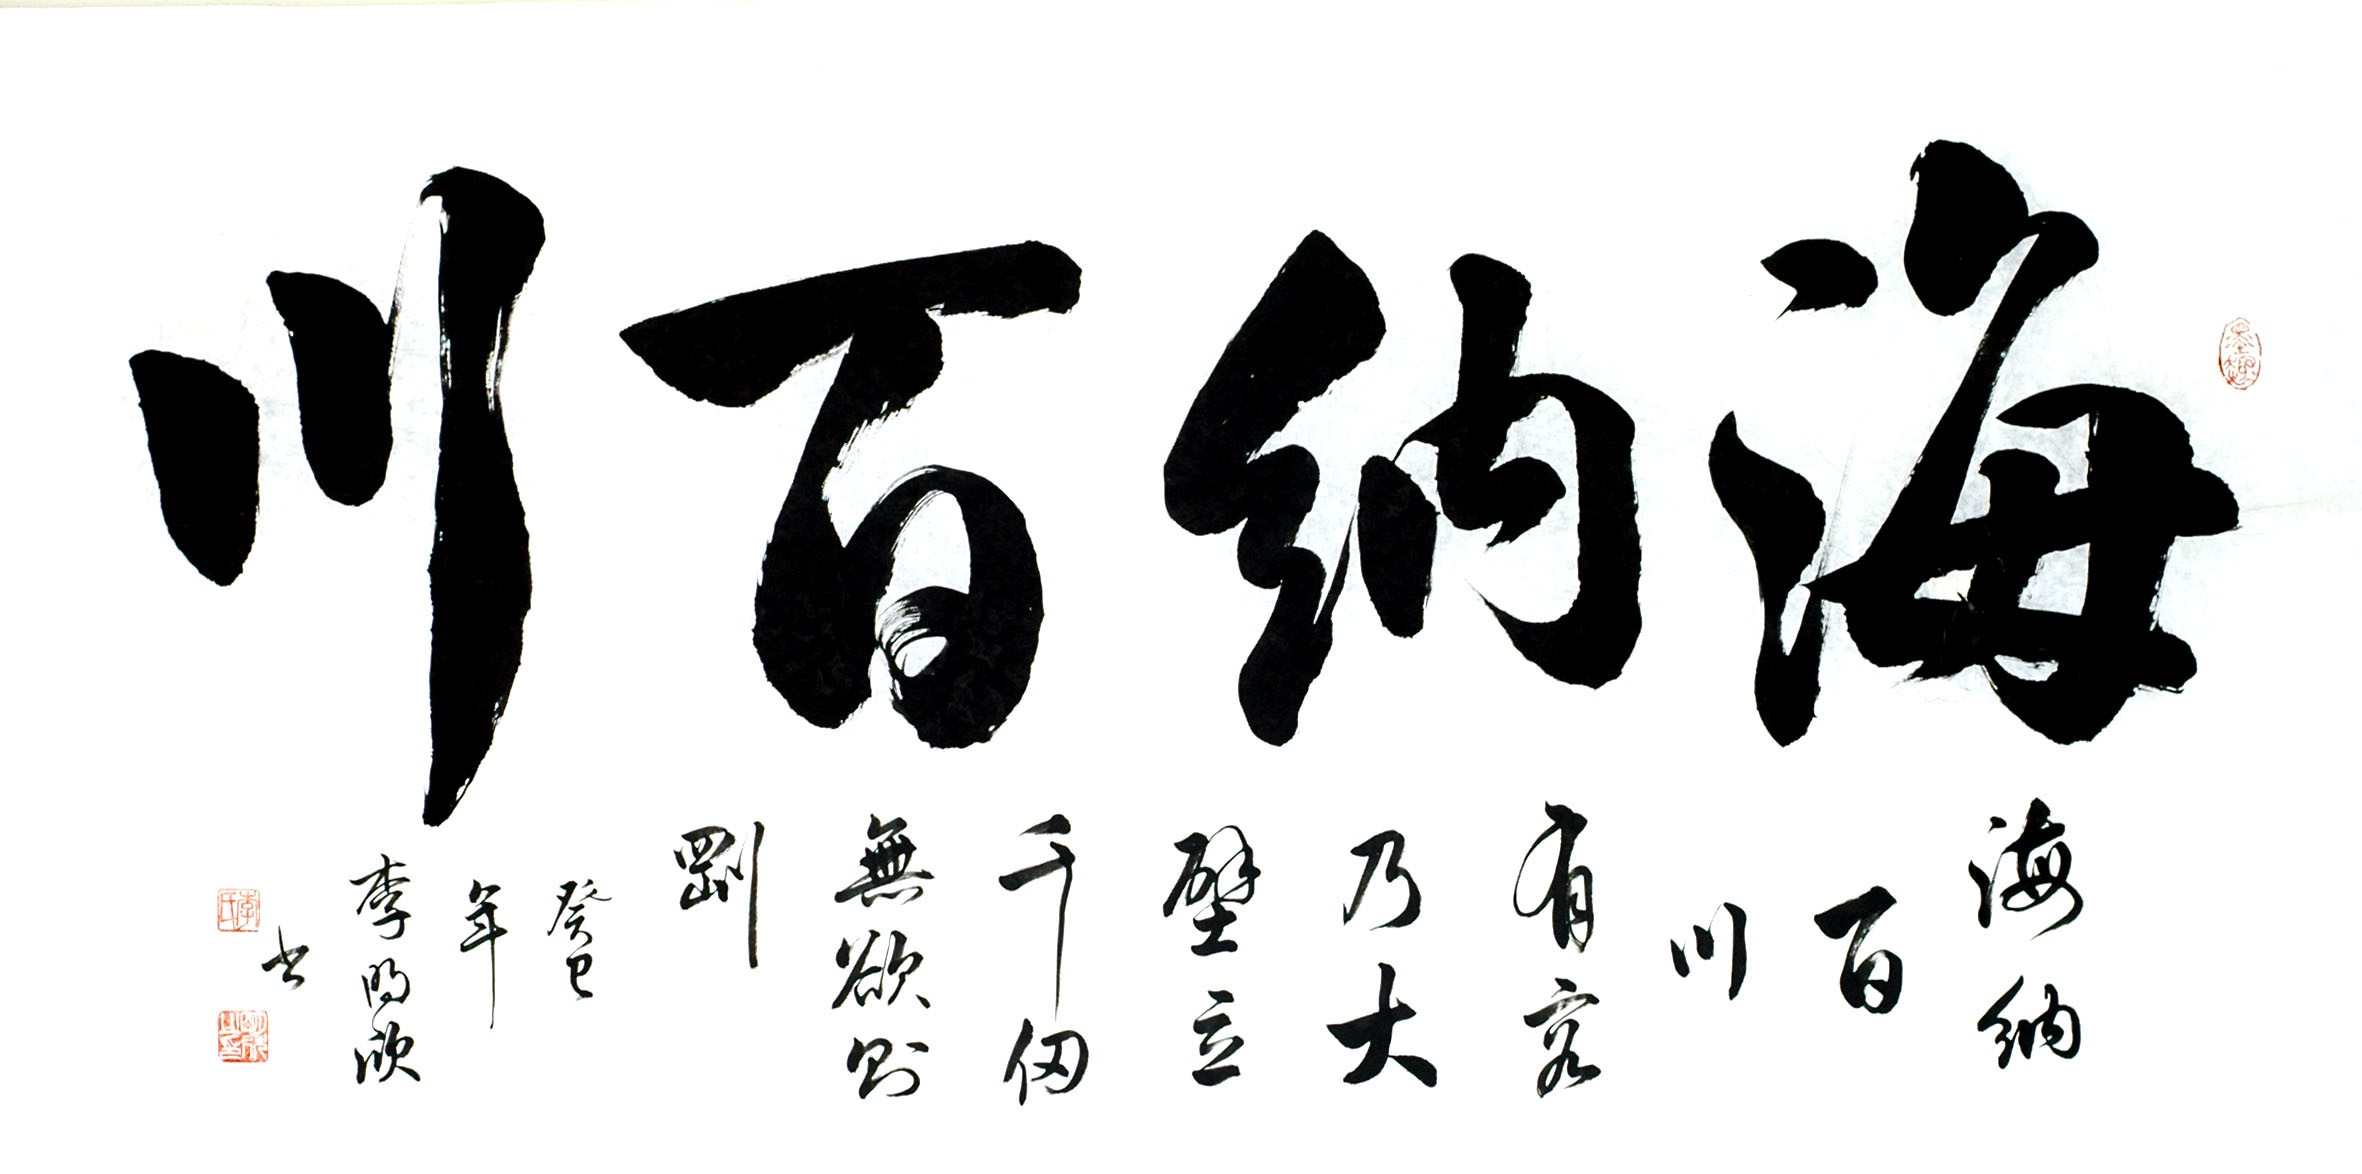 海納百川
海納
百
川
有容
乃大
壁立
千仞
無欲則
剛
癸巳
年
李明
书
李氏